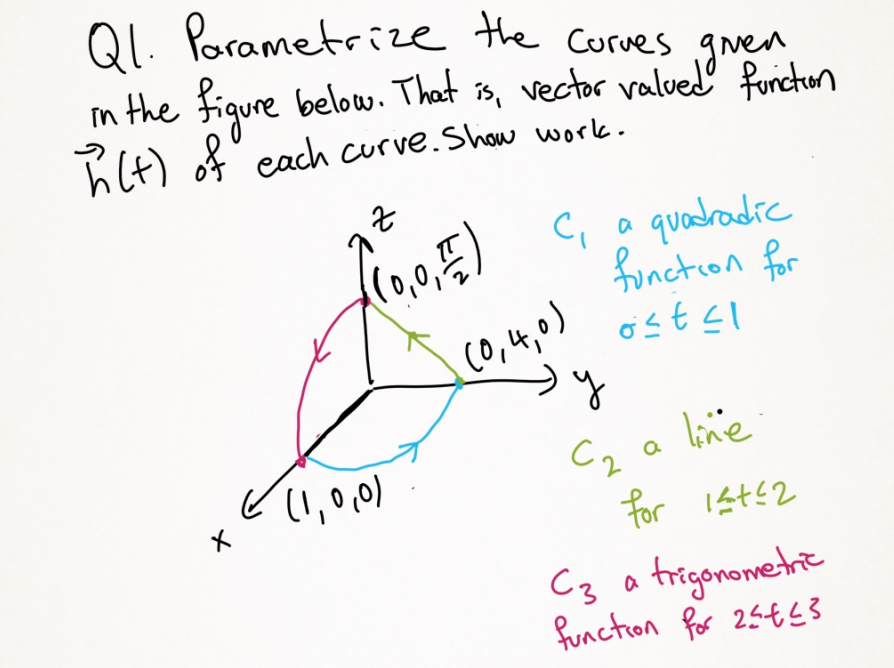 Q1. Parametrize the curves given
in the figure below. That is, vector valued function
h(t) of each curve. Show work.
z
(0,0,π/2)
(0,4,0)
y
(1,0,0)
x
C₁ a quadradic
function for
0≤t≤1
C₂ a line
for 1≤t≤2
C₃ a trigonometric
function for 2≤t≤3